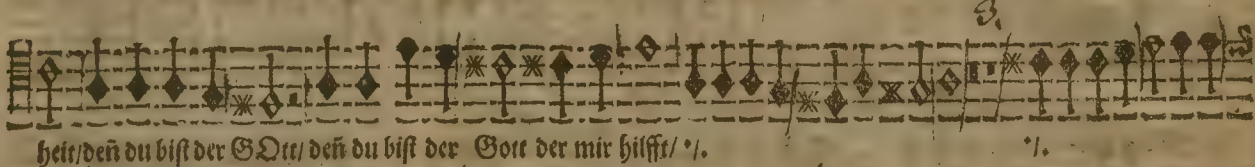 3.
heit/deñ du bist der GOtt/ deñ du bist der Gott der mir hilfft/ ·/. ·/.